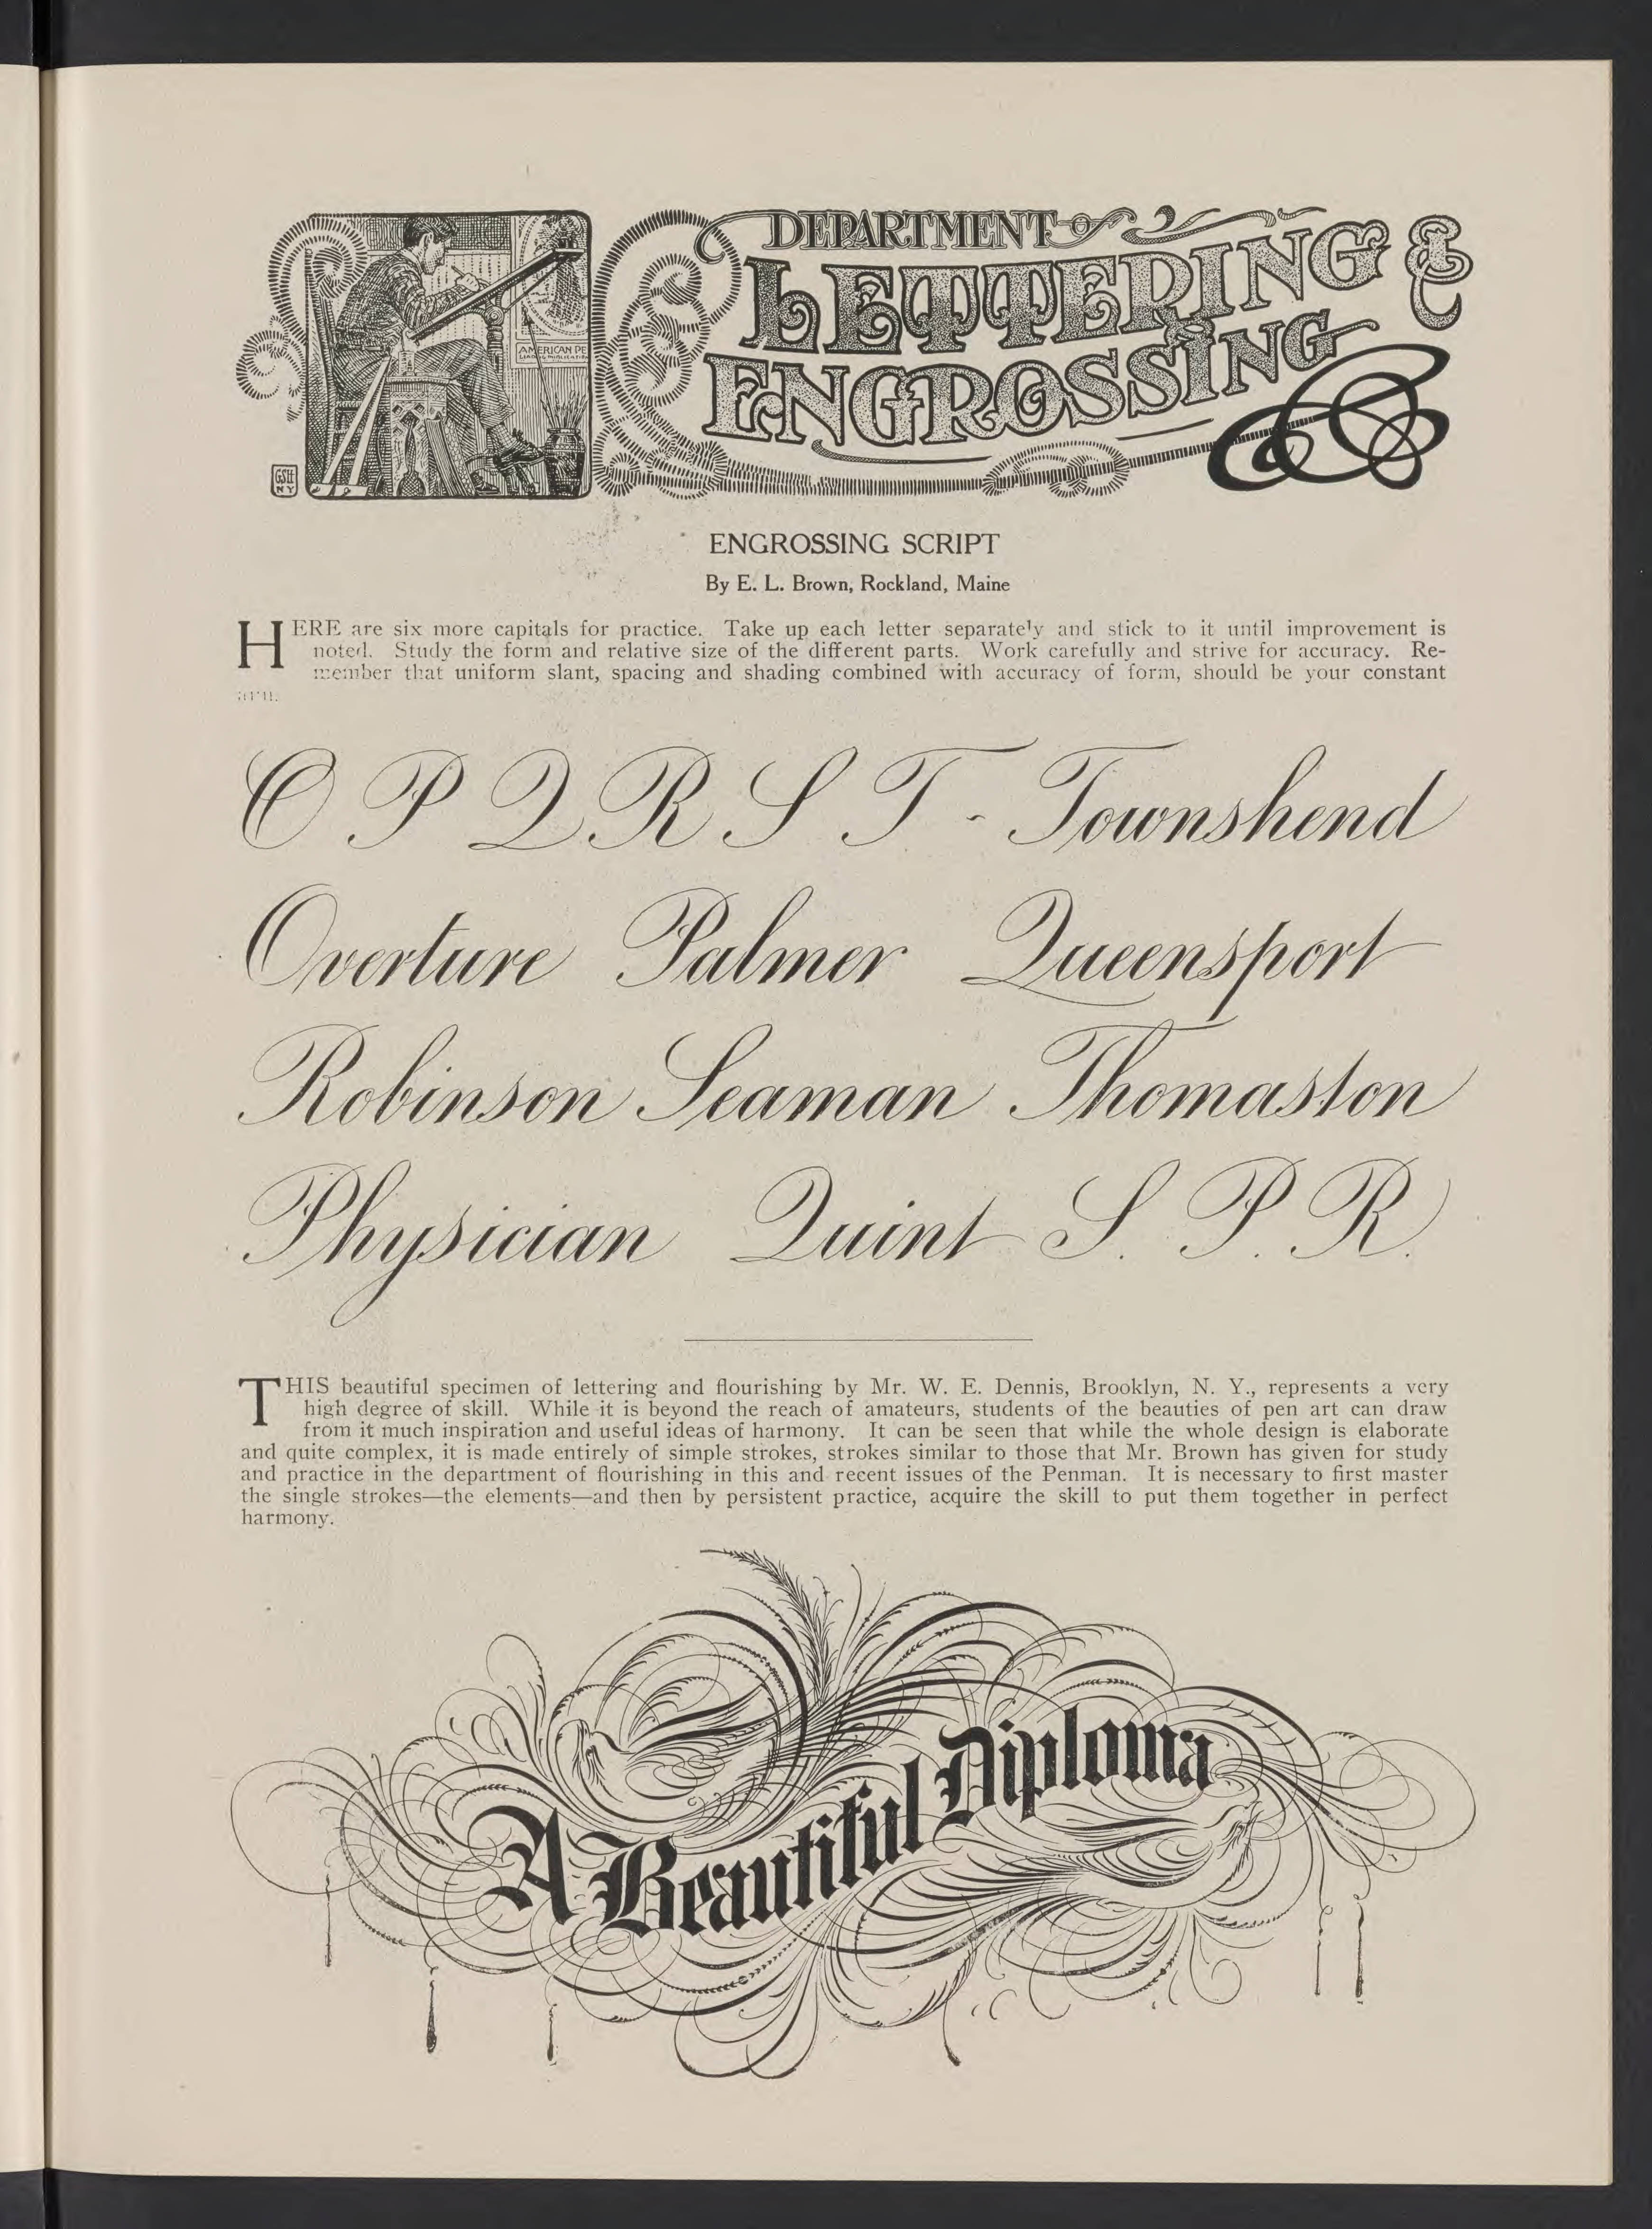 DEPARTMENT of
LETTERING &
ENGROSSING
AMERICAN PE
GSH
NY
ENGROSSING SCRIPT
By E. L. Brown, Rockland, Maine
HERE are six more capitals for practice. Take up each letter separately and stick to it until improvement is
noted. Study the form and relative size of the different parts. Work carefully and strive for accuracy. Re-
member that uniform slant, spacing and shading combined with accuracy of form, should be your constant
aim.
O P Q R S T - Townshend
Overture Palmer Queensport
Robinson Seaman Thomaston
Physician Quint S. P. R.
THIS beautiful specimen of lettering and flourishing by Mr. W. E. Dennis, Brooklyn, N. Y., represents a very
high degree of skill. While it is beyond the reach of amateurs, students of the beauties of pen art can draw
from it much inspiration and useful ideas of harmony. It can be seen that while the whole design is elaborate
and quite complex, it is made entirely of simple strokes, strokes similar to those that Mr. Brown has given for study
and practice in the department of flourishing in this and recent issues of the Penman. It is necessary to first master
the single strokes—the elements—and then by persistent practice, acquire the skill to put them together in perfect
harmony.
A Beautiful Diploma